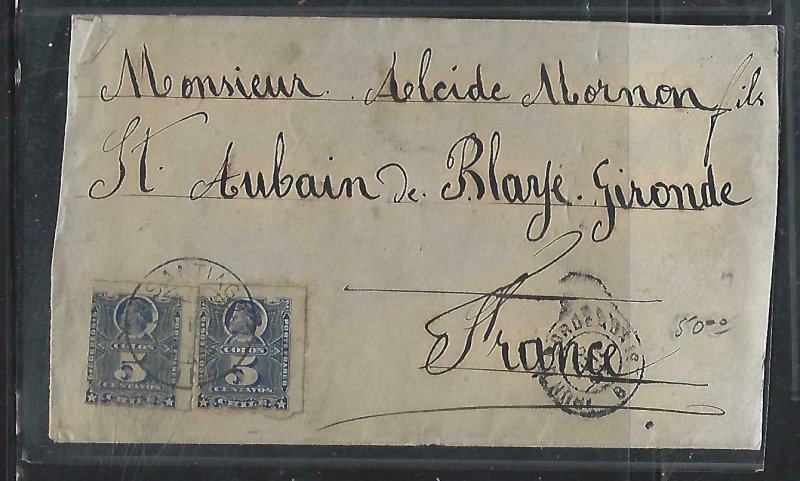 Monsieur. Alcide Mornon fils
St. Aubain de. Blaye. Gironde
France
SANTIAGO
COLON COLON
5 5
CENTAVOS CENTAVOS
BORDEAUX
5000